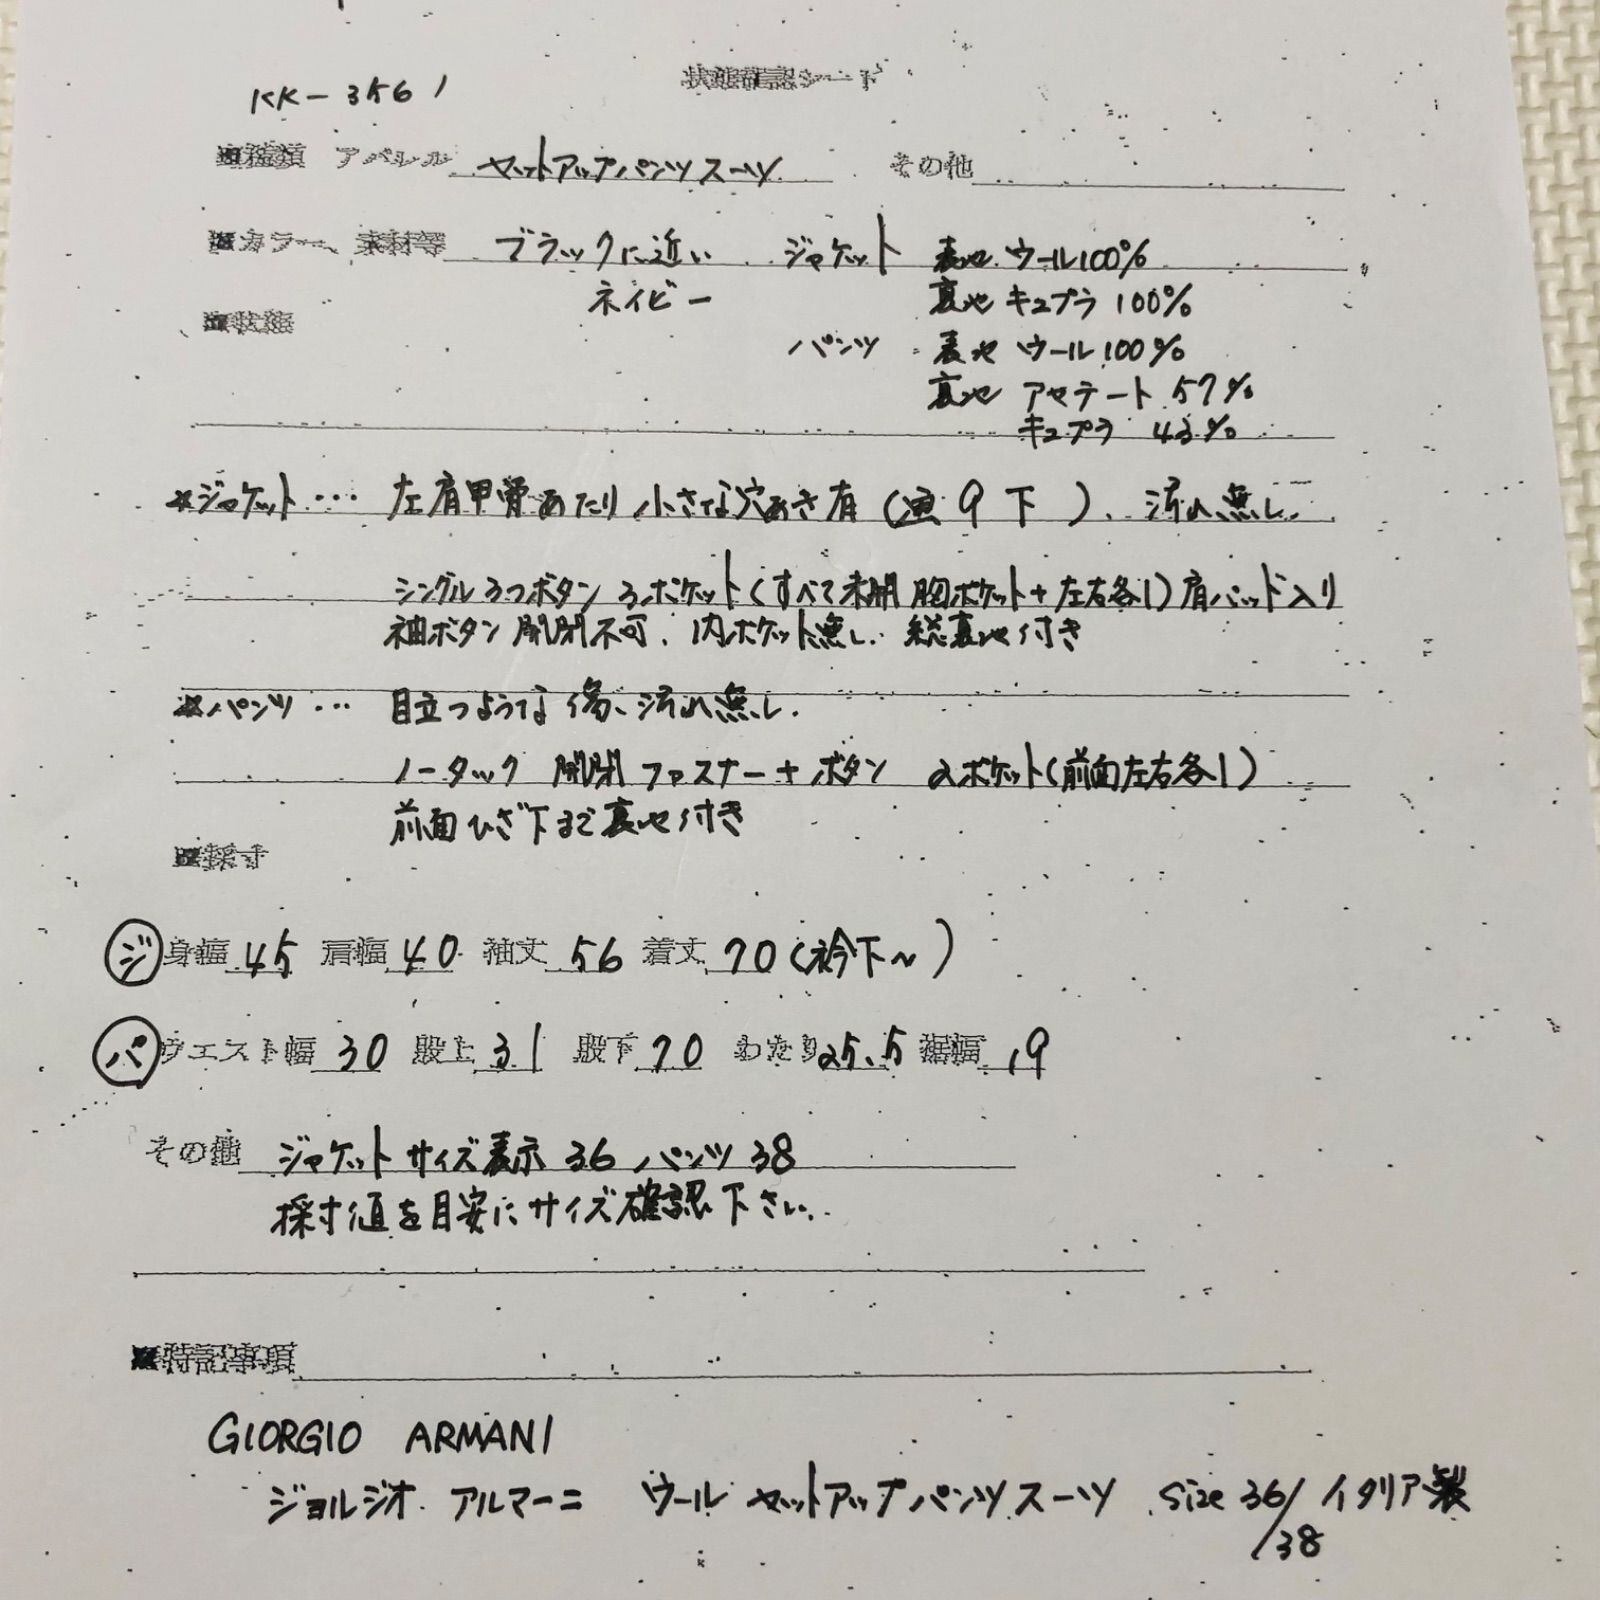 状態確認シート
KK-3561
■種類 アパレル セットアップパンツスーツ その他
■カラー、素材等 ブラックに近い ジャケット 表地 ウール100%
ネイビー 裏地 キュプラ 100%
■状態
パンツ 表地 ウール100%
裏地 アセテート 57%
キュプラ 43%
*ジャケット… 左肩甲骨あたり小さな穴あき有(画9下)、汚れ無し。
シングル3つボタン 3ポケット(すべて未開 胸ポケット+左右各1)肩パッド入り
袖ボタン開閉不可、内ポケット無し、総裏地付き
*パンツ… 目立つような傷、汚れ無し。
ノータック 開閉ファスナー+ボタン 2ポケット(前面左右各1)
前面ひざ下まで裏地付き
■採寸
ジ 身幅 45 肩幅 40 袖丈 56 着丈 70(衿下~)
パ ウエスト幅 30 股上 31 股下 70 わたり 25.5 裾幅 19
その他 ジャケットサイズ表示 36 パンツ 38
採寸値を目安にサイズ確認下さい。
■特記事項
GIORGIO ARMANI
ジョルジオ アルマーニ ウール セットアップパンツスーツ size 36/38 イタリア製